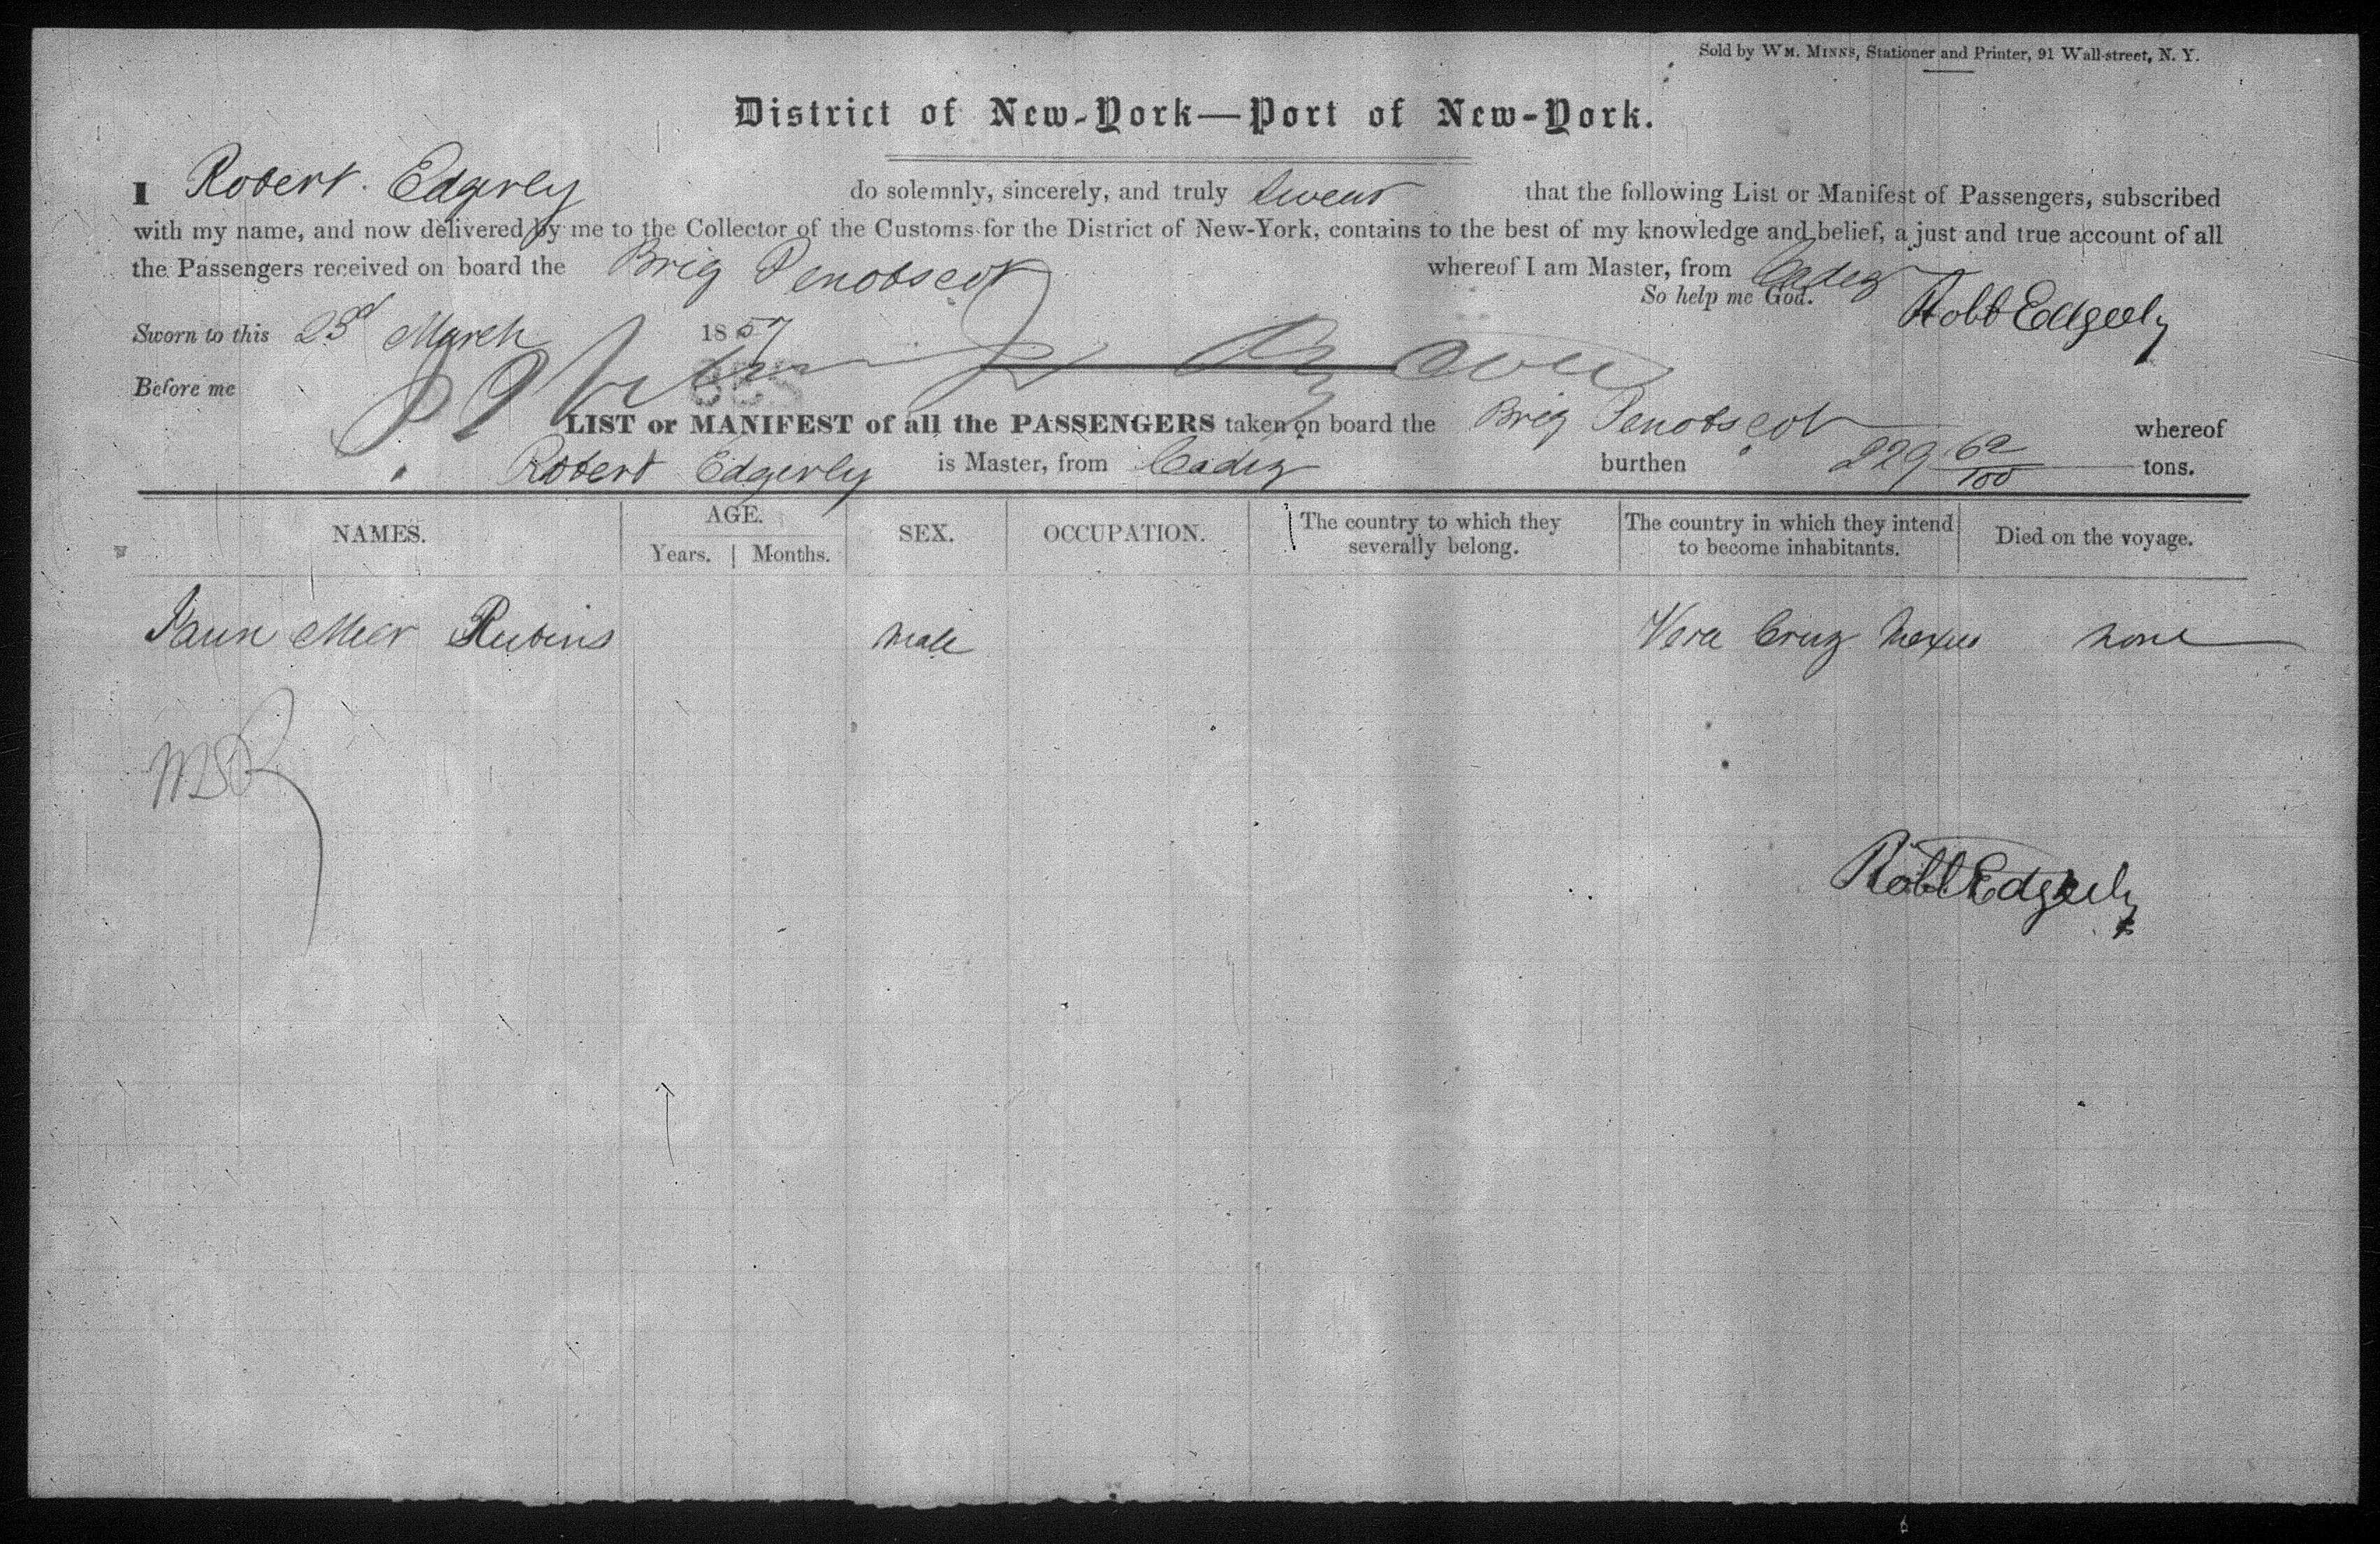 Sold by WM. MINNS, Stationer and Printer, 91 Wall-street, N. Y.
District of New-York—Port of New-York.
I Robert Edgerly do solemnly, sincerely, and truly swear that the following List or Manifest of Passengers, subscribed
with my name, and now delivered by me to the Collector of the Customs for the District of New-York, contains to the best of my knowledge and belief, a just and true account of all
the Passengers received on board the Brig Penobscot whereof I am Master, from Cadiz
So help me God. Robt Edgerly
Sworn to this 23d March 1857
Before me
LIST or MANIFEST of all the PASSENGERS taken on board the Brig Penobscot whereof
Robert Edgerly is Master, from Cadiz burthen 229 62/100 tons.
NAMES. AGE. Years. Months. SEX. OCCUPATION. The country to which they severally belong. The country in which they intend to become inhabitants. Died on the voyage.
Rubins male Vera Cruz Mexico none
Robt Edgerly